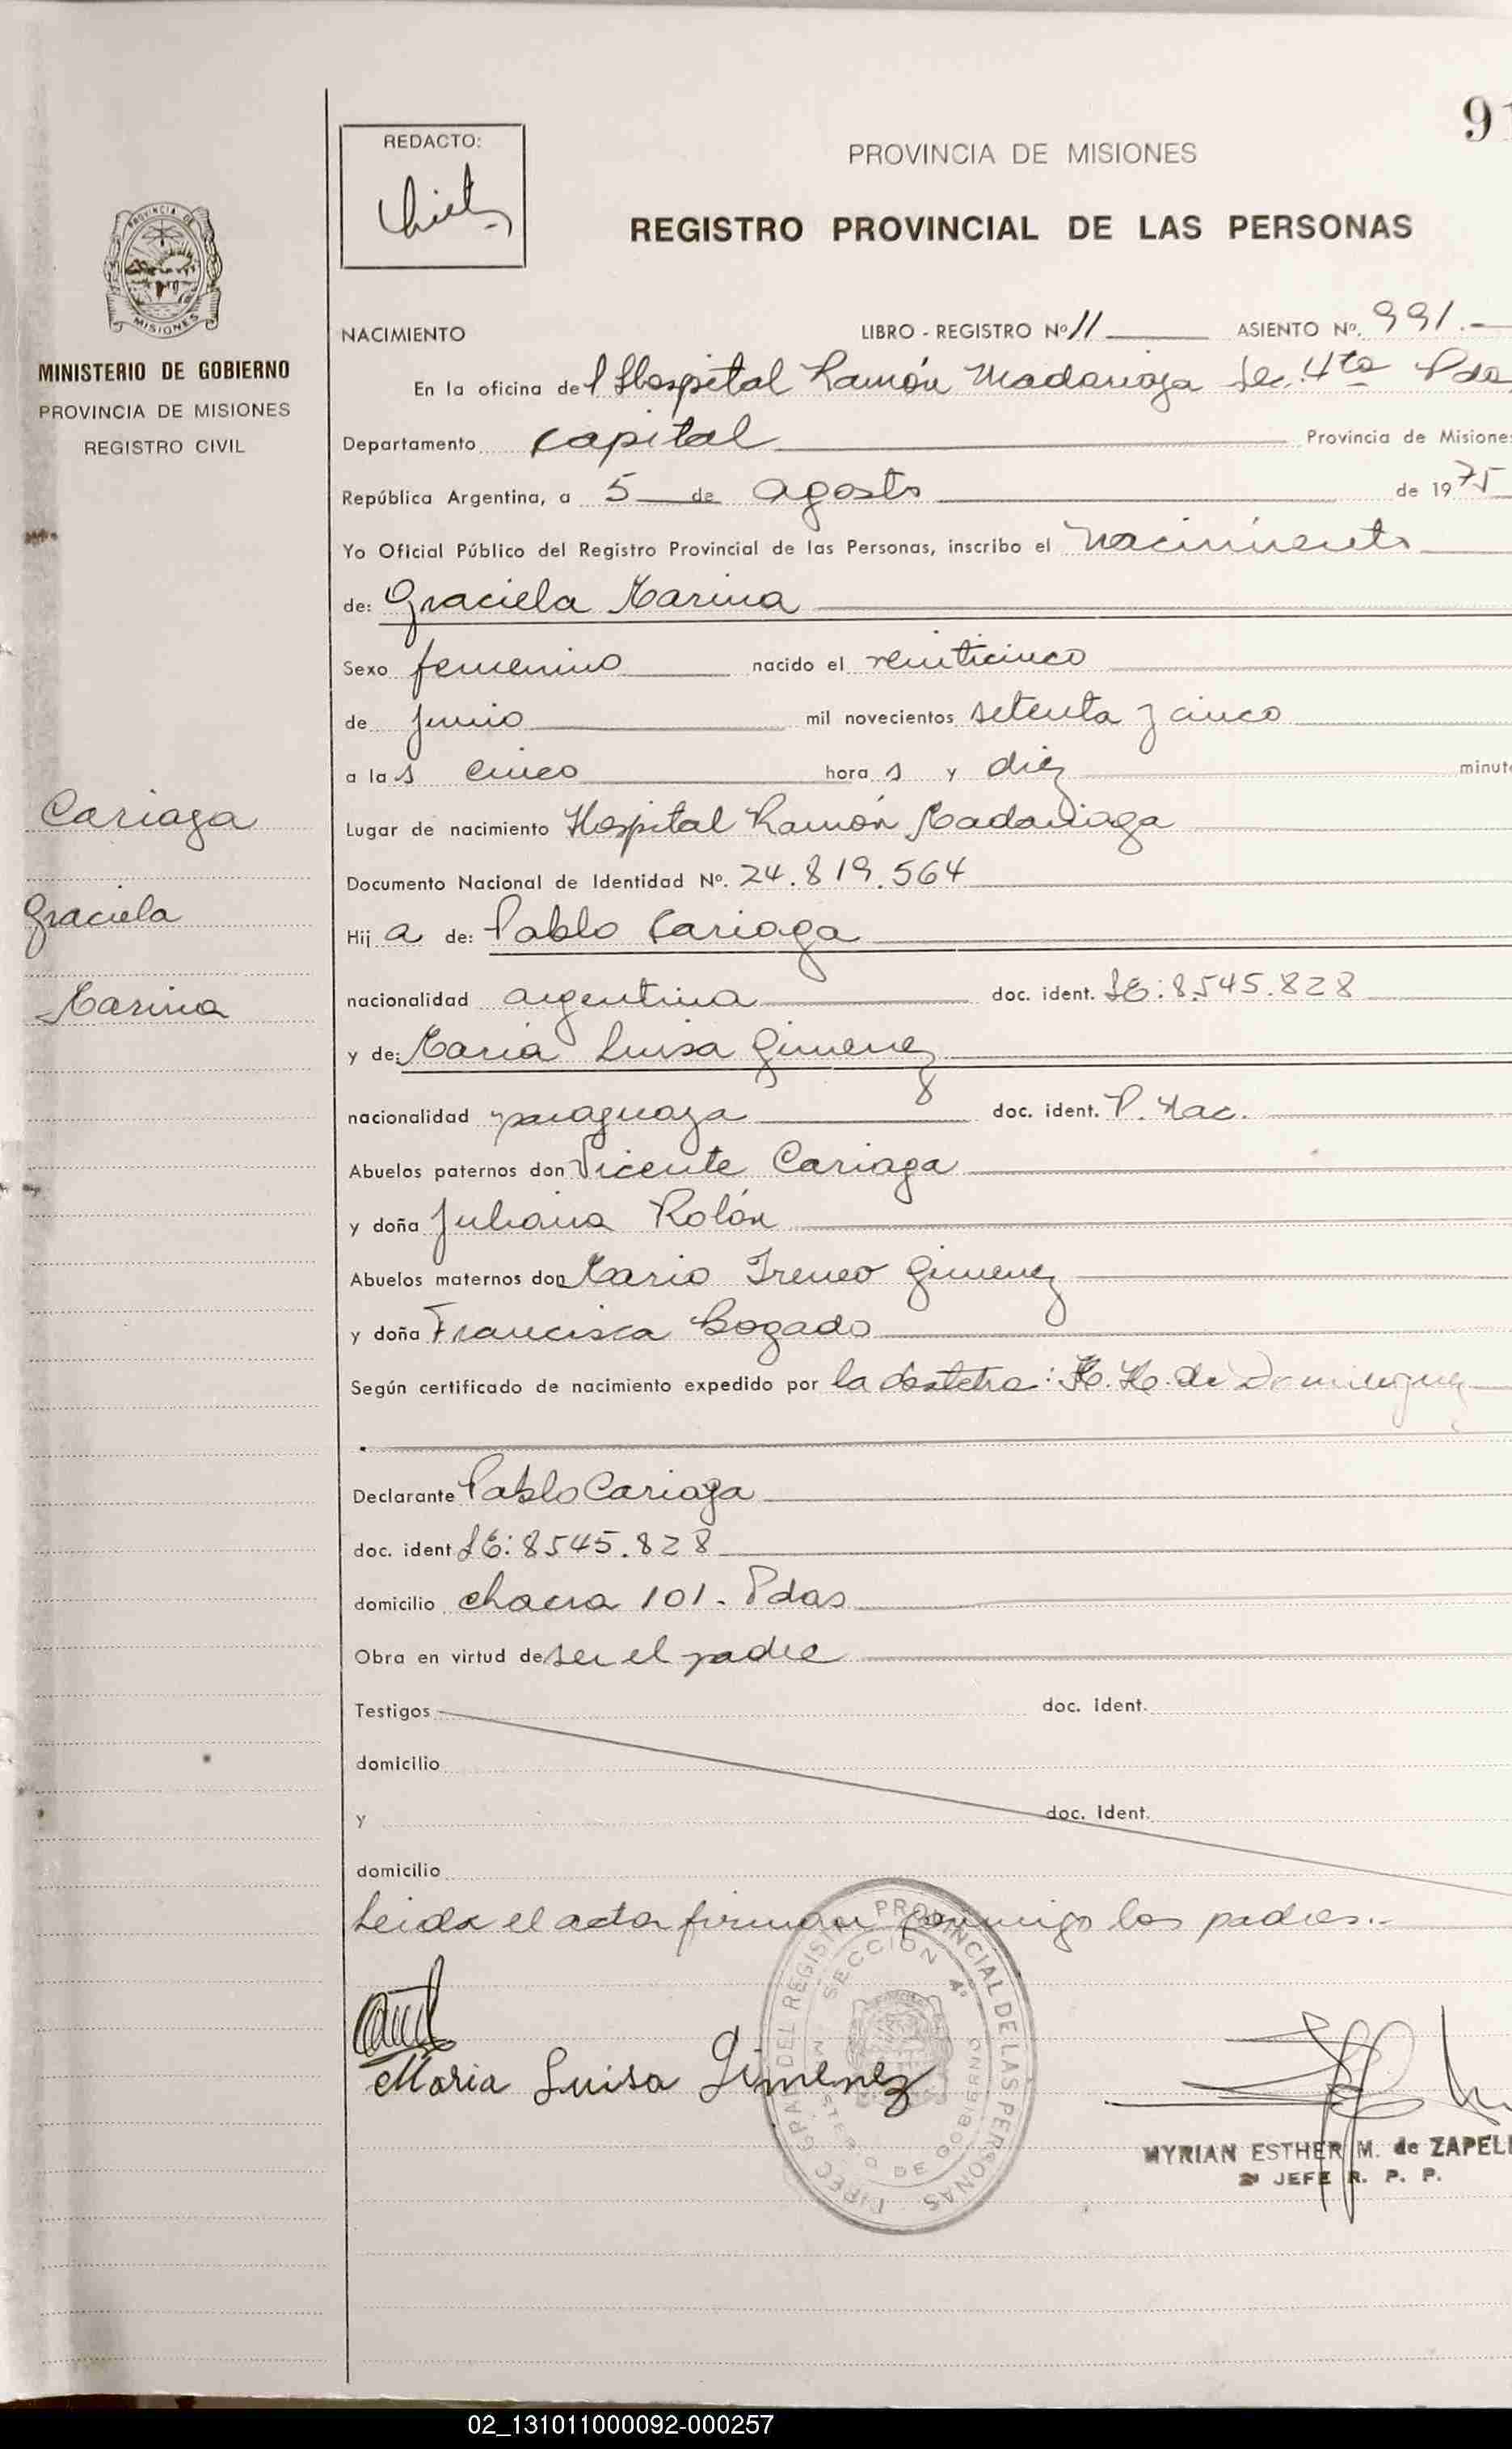 91
REDACTO:
PROVINCIA DE MISIONES
REGISTRO PROVINCIAL DE LAS PERSONAS
PROVINCIA DE
MISIONES
MINISTERIO DE GOBIERNO
PROVINCIA DE MISIONES
REGISTRO CIVIL
NACIMIENTO LIBRO - REGISTRO Nº 11 ASIENTO Nº. 991.-
En la oficina del Hospital Ramón Madariaga Sec. 4ta Pdas
Departamento capital Provincia de Misiones
República Argentina, a 5 de agosto de 1975
Yo Oficial Público del Registro Provincial de las Personas, inscribo el Nacimiento
de: Graciela Marina
Sexo femenino nacido el veinticinco
de junio mil novecientos setenta y cinco
a las cinco horas y diez minut
Cariaga
Graciela
Marina
Lugar de nacimiento Hospital Ramón Madariaga
Documento Nacional de Identidad Nº. 24.819.564
Hija de: Pablo Cariaga
nacionalidad argentina doc. ident. LE: 8.545.828
y de: Maria Luisa Gimenez
nacionalidad paraguaya doc. ident. P. Nac.
Abuelos paternos don Vicente Cariaga
y doña Juliana Rolón
Abuelos maternos don Mario Ireneo Gimenez
y doña Francisca Bogado
Según certificado de nacimiento expedido por la obstetra: M. de Dominguez
Declarante Pablo Cariaga
doc. ident LE: 8545.828
domicilio chacra 101. Pdas
Obra en virtud de ser el padre
Testigos doc. ident.
domicilio
y doc. ident.
domicilio
Leida el acta firman conmigo los padres.-
Maria Luisa Gimenez
DIREC. GRAL DEL REGISTRO PROVINCIAL DE LAS PERSONAS
SECCION 4ª
MINISTERIO DE GOBIERNO
MYRIAN ESTHER M. de ZAPELL
JEFE R. P. P.
02_131011000092-000257